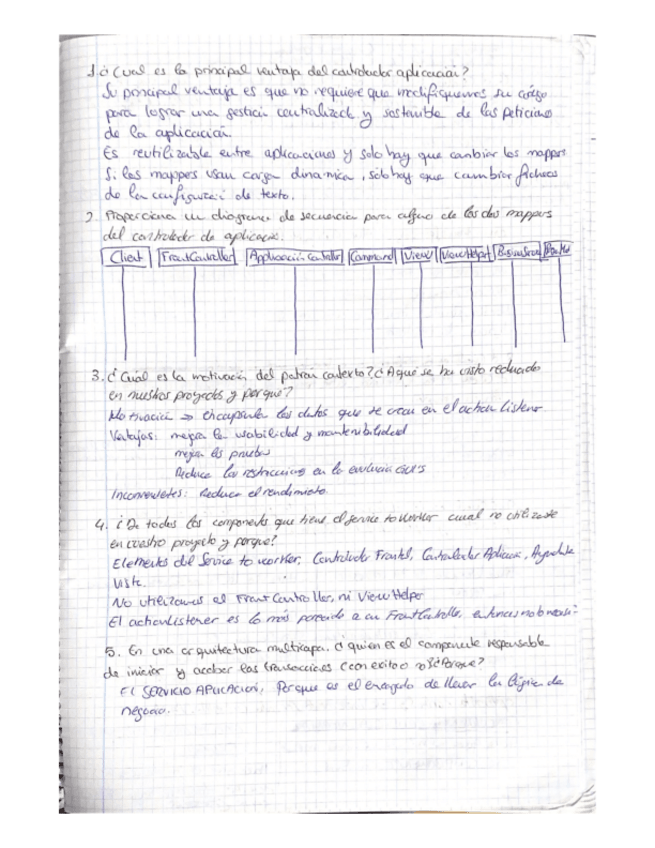 1. ¿Cual es la principal ventaja del controlador aplicación?
Su principal ventaja es que no requiere que modifiquemos su código
para lograr una gestión centralizada y sostenible de las peticiones
de la aplicación.
Es reutilizable entre aplicaciones y solo hay que cambiar los mappers
Si los mappers usan carga dinamica, solo hay que cambiar ficheros
de la configuración de texto.
2. Proporciona un diagrama de secuencia para alguno de los dos mappers
del controlador de aplicación.
Client FrontController Application Controller Command View ViewHelper
3. ¿Cuál es la motivación del patrón contexto? ¿A qué se ha visto reducido
en nuestros proyectos y porque?
Motivación => encapsular los datos que se crean en el action listener
Ventajas: mejora la usabilidad y mantenibilidad
mejora las pruebas
Reduce las restricciones en la evolución
Inconvenientes: Reduce el rendimiento.
4. ¿De todos los componentes que tiene el service to worker cual no utilizaste
en vuestro proyecto y porque?
Elementos del Service to worker, Controlador Frontal, Controlador Aplicación, Ayudante
Vista.
No utilizamos el FrontController, ni ViewHelper
El actionListener es lo más parecido a un FrontController, entonces no
5. En una arquitectura multicapa, ¿quien es el componente responsable
de iniciar y acabar las transacciones (con exito o no)? ¿Porque?
El SERVICIO APLICACION, Porque es el encargado de llevar la lógica de
negocio.